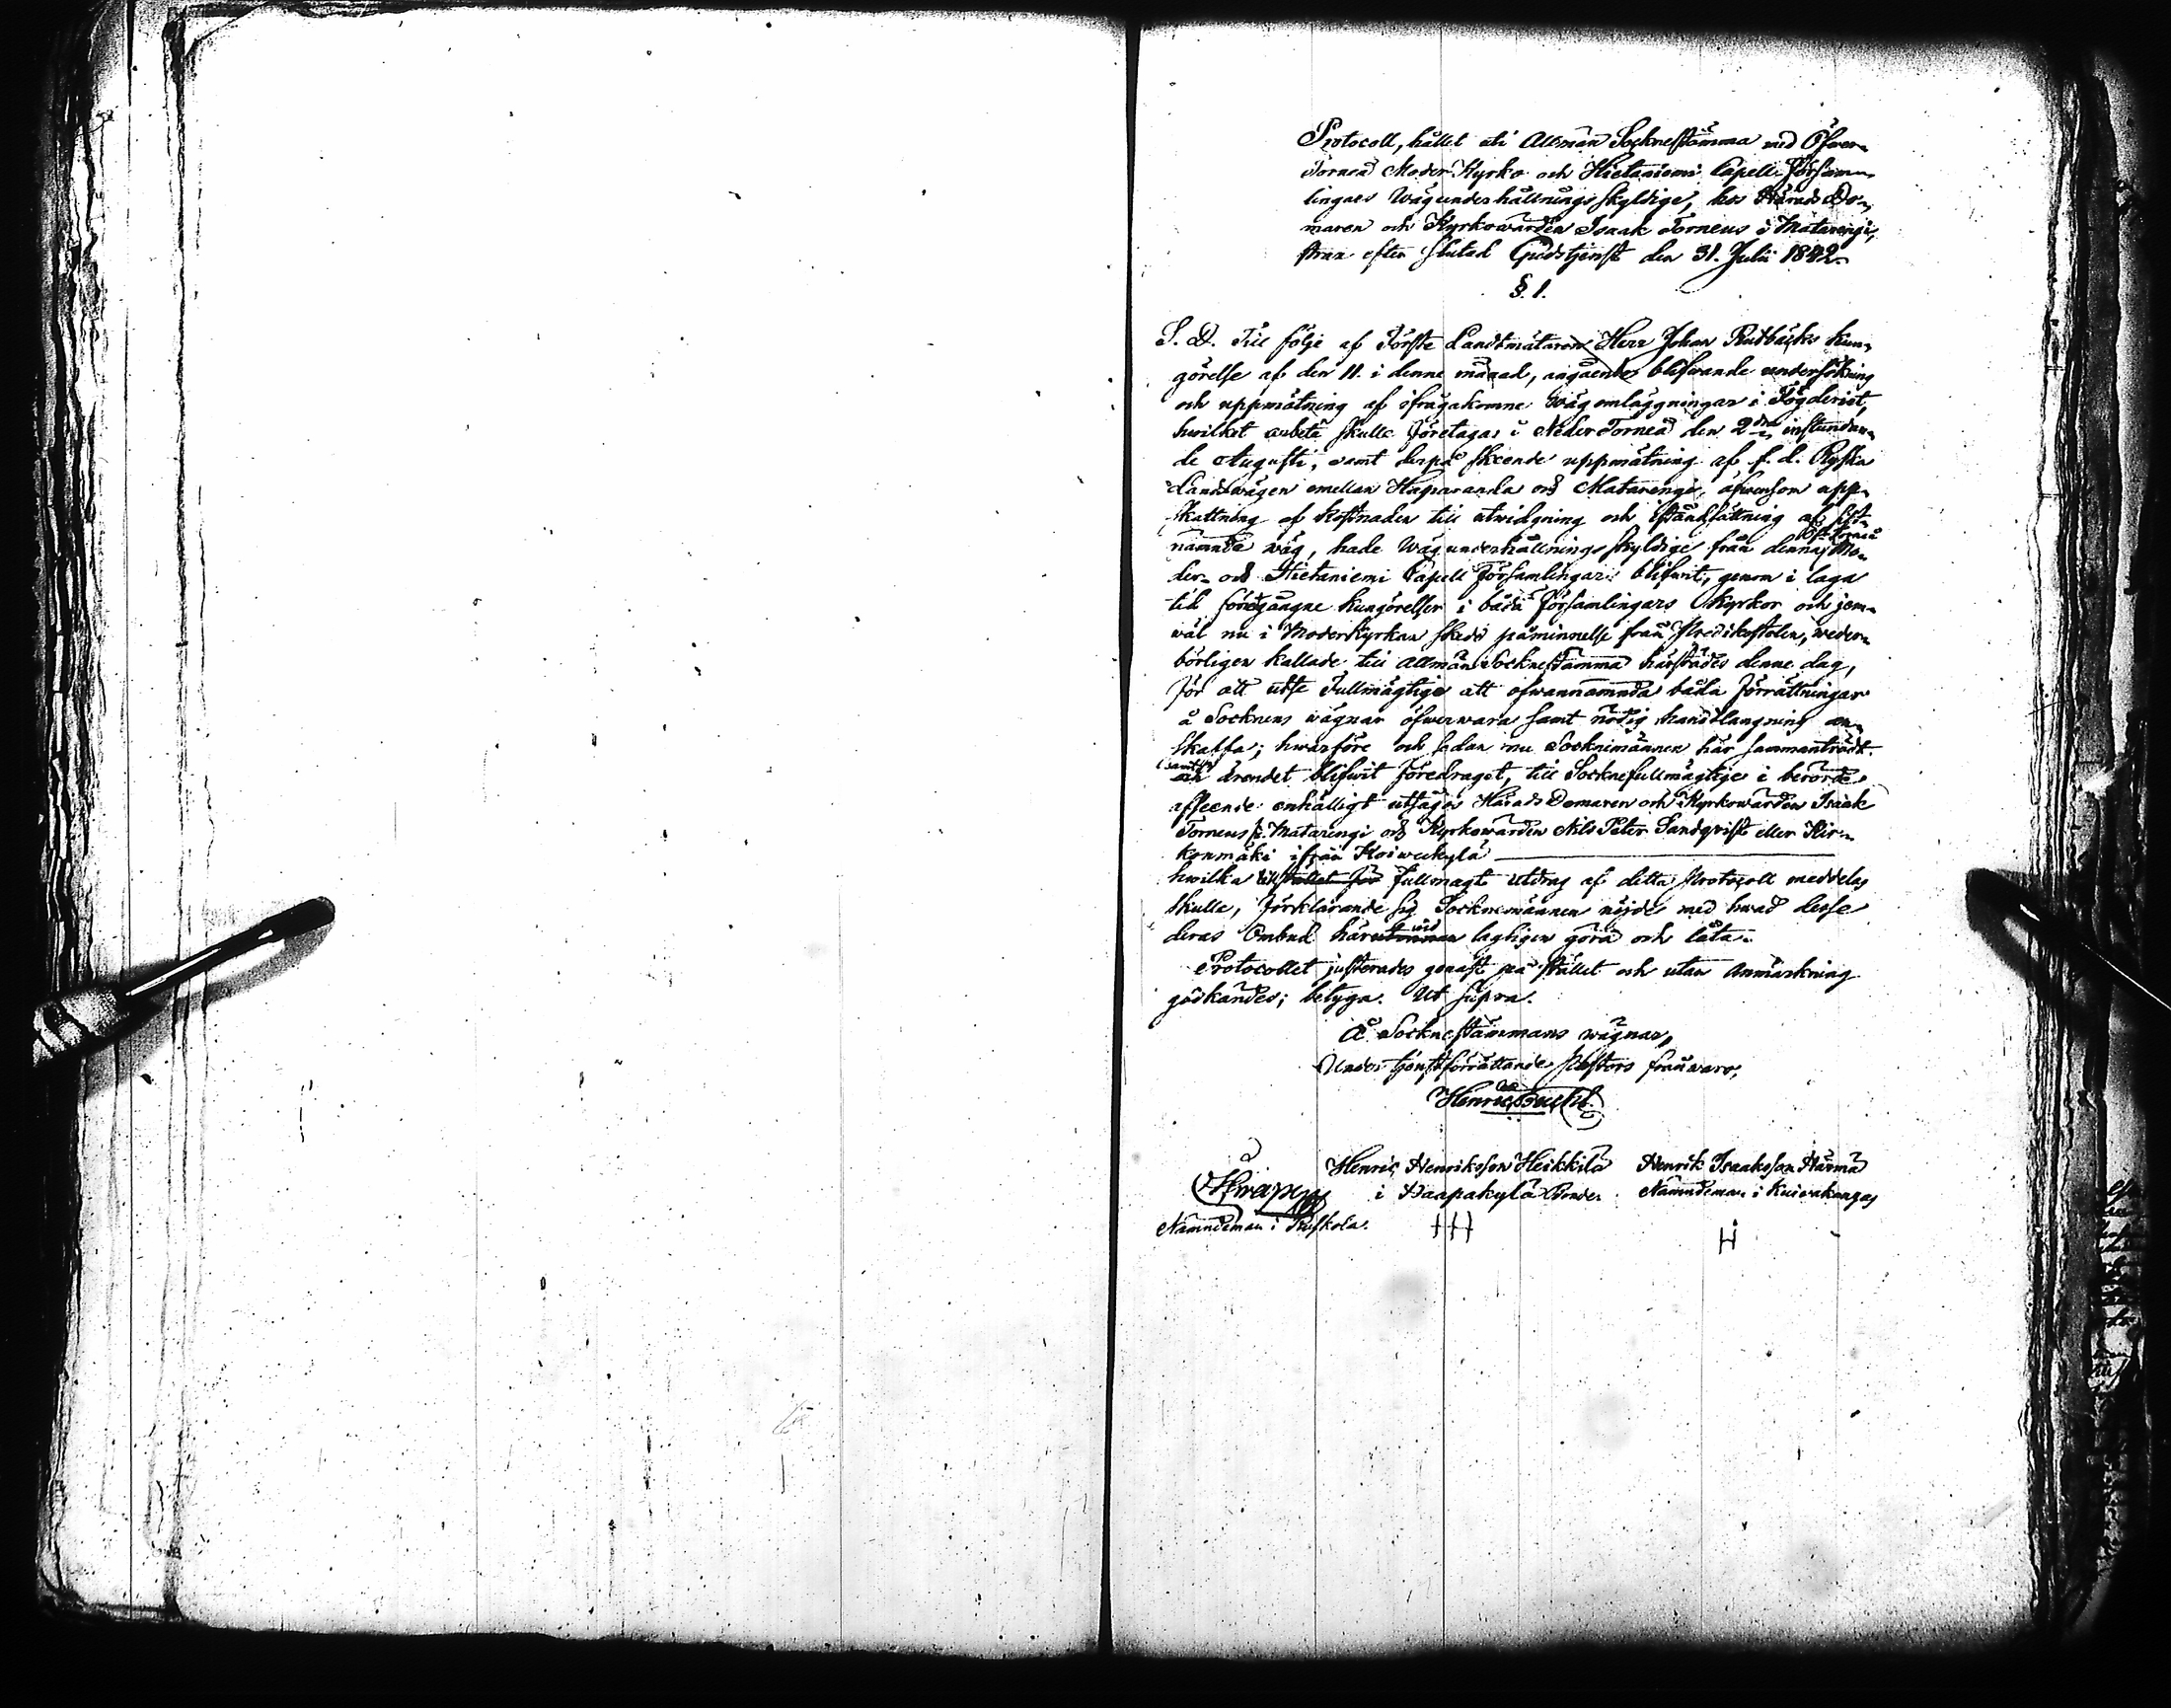 Protocoll, hållet uti Allmän Sockneståmma med Öfwer-
Torneå Moder-Kyrko och Hietaniemi Capell-Församm-
lingars Wägunderhållningsskyldige, hos Härads Do-
maren och Kyrkowärden Isaak Torneus i Matarengi,
strax efter slutad Gudstjenst den 31. Julii 1842.
§. 1.
S. D. Till följe af Förste Landtmätaren Herr Johan Rutbäcks kun-
görelse af den 11. i denne månad, angående blifwande undersökning
och uppmätning af ifrågakomne wägomläggningar i Fögderiet,
hwilket arbete skulle företagas i Neder Torneå den 2dra instundan-
de Augusti, samt derpå skeende uppmätning af f. d. Ryska
Landswägen emellan Haparanda och Matarengi, äfwensom upp-
skattning af kostnaden till utwidgning och iståndsättning af sist-
nämnde wäg, hade Wägunderhållningsskyldige från denna Öf. Torneå Mo-
der- och Hietaniemi Capell Församlingar blifwit, genom i laga
tid föregångne kungörelser i båda Församlingars Kyrkor och jem-
wäl nu i Moderkyrkan skedd påminnelse från Predikostolen, weder-
börligen kallade till Allmän Socknestämma härstädes denne dag,
för att utse Fullmägtige att ofwannämnda båda förrättningar
å Socknens wägnar öfwerwara samt nödig handtlangning an-
skaffa; hwarföre och sedan nu Socknemännen här sammanträdt
samt ärendet blifwit föredraget, till Socknefullmägtige i berörde
afseende enhälligt utsågos Härads Domaren och Kyrkowärden Isaak
Torneus fr. Matarengi och Kyrkowärden Nils Peter Sandqvist eller Kir-
konmäki ifrån Koiwukylä
hwilka till fullmagt utdrag af detta Protocoll meddelas
skulle, förklarande sig Socknemännen nöjde med hwad desse
deras Ombud härwid lagligen göra och låta.
Protocollet justerades genast på stället och utan Anmärkning
godkändes; betyga. Ut supra.
Å Socknestämmans wägnar,
Under tjenstförrättande Pastors frånwaro,
Henric
Henric Henriksson Heikkilä Henrik Isaaksson Härmä
i Haapakylä Bonde. Nämndeman i Kuiwakangas
Nämndeman i Ruskola.
HH H